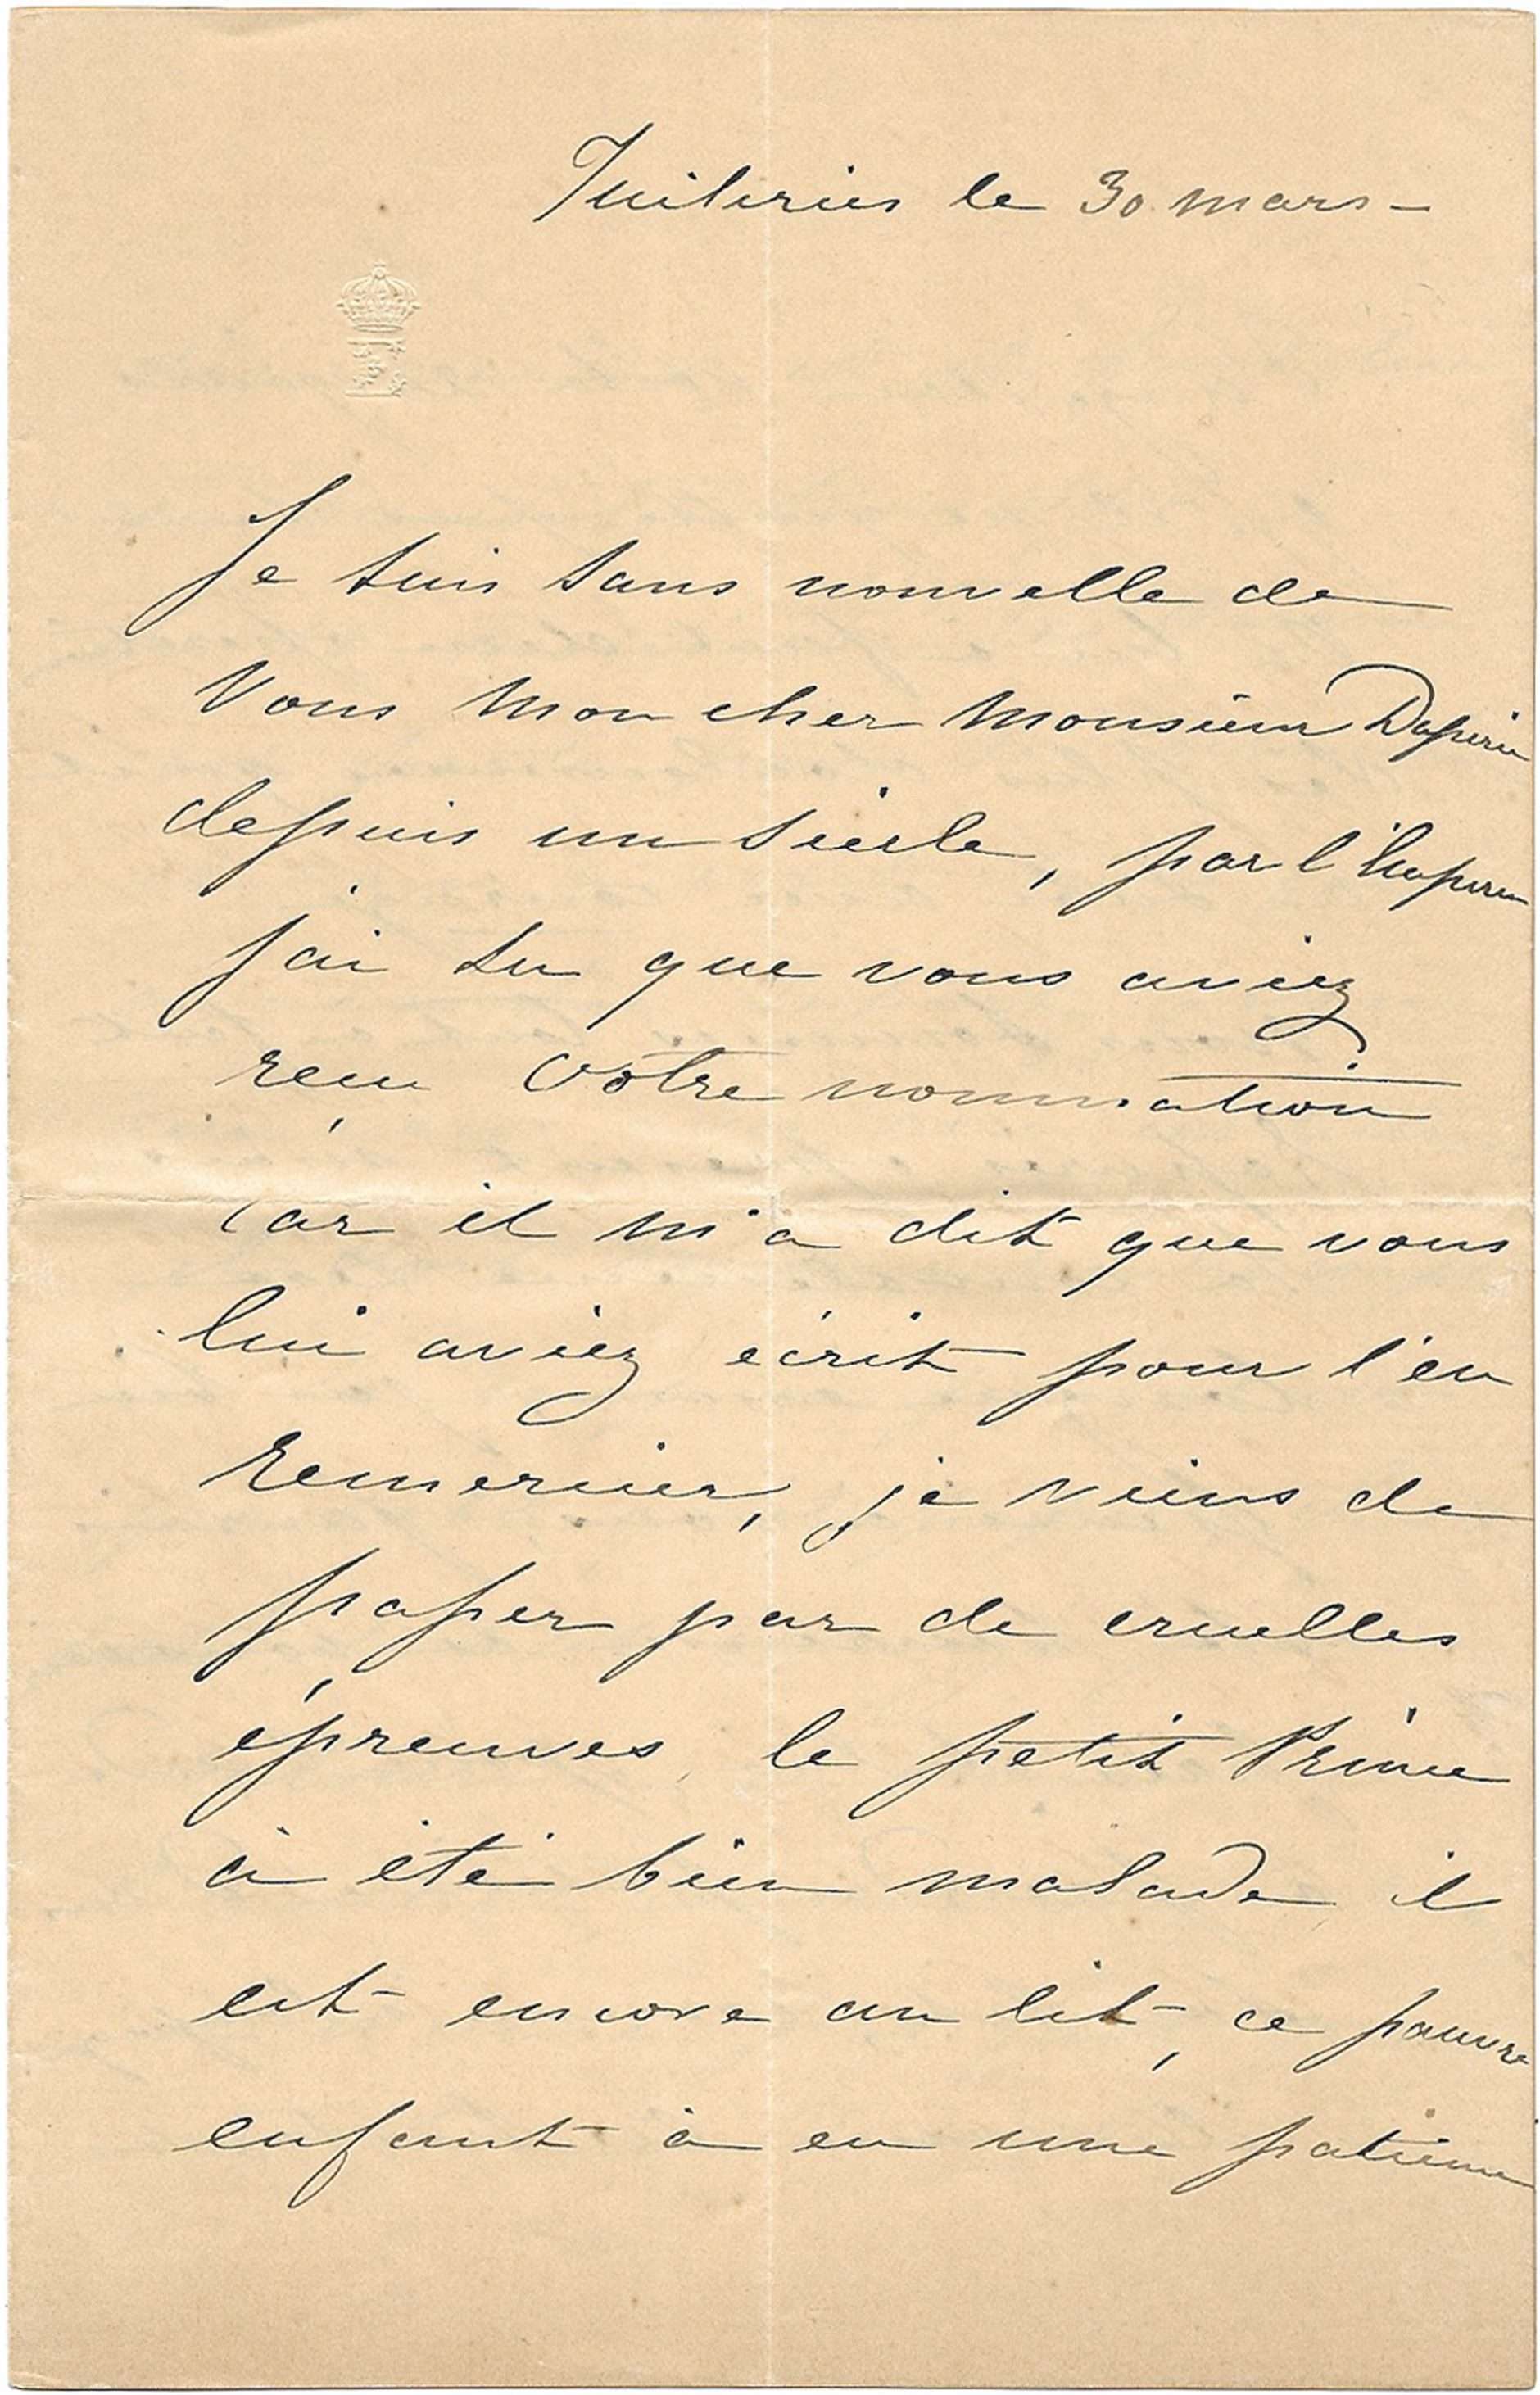 Tuileries le 30 mars –
Je suis sans nouvelle de
Vous mon cher Monsieur
depuis un siècle, par l'Empereur
j'ai su que vous aviez
reçu votre nomination
car il m'a dit que vous
lui aviez écrit pour l'en
remercier, je viens de
passer par de cruelles
épreuves, le petit Prince
à été bien malade, il
est encore au lit, ce pauvre
enfant à eu une patience